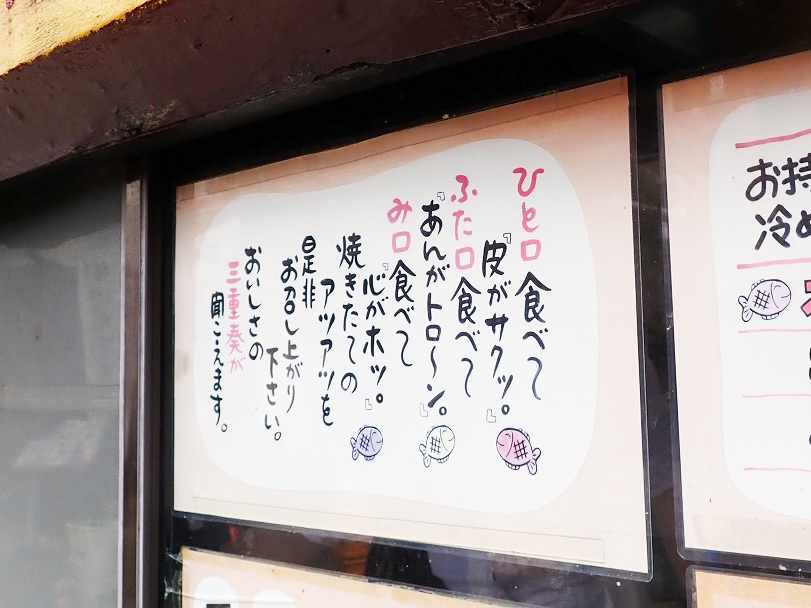 ひと口食べて
『皮がサクッ。』
ふた口食べて
『あんがトロ〜ン。』
み口食べて
『心がホッ。』
焼きたての
アツアツを
是非
お召し上がり
下さい。
おいしさの
三重奏が
聞こえます。
お持
冷め